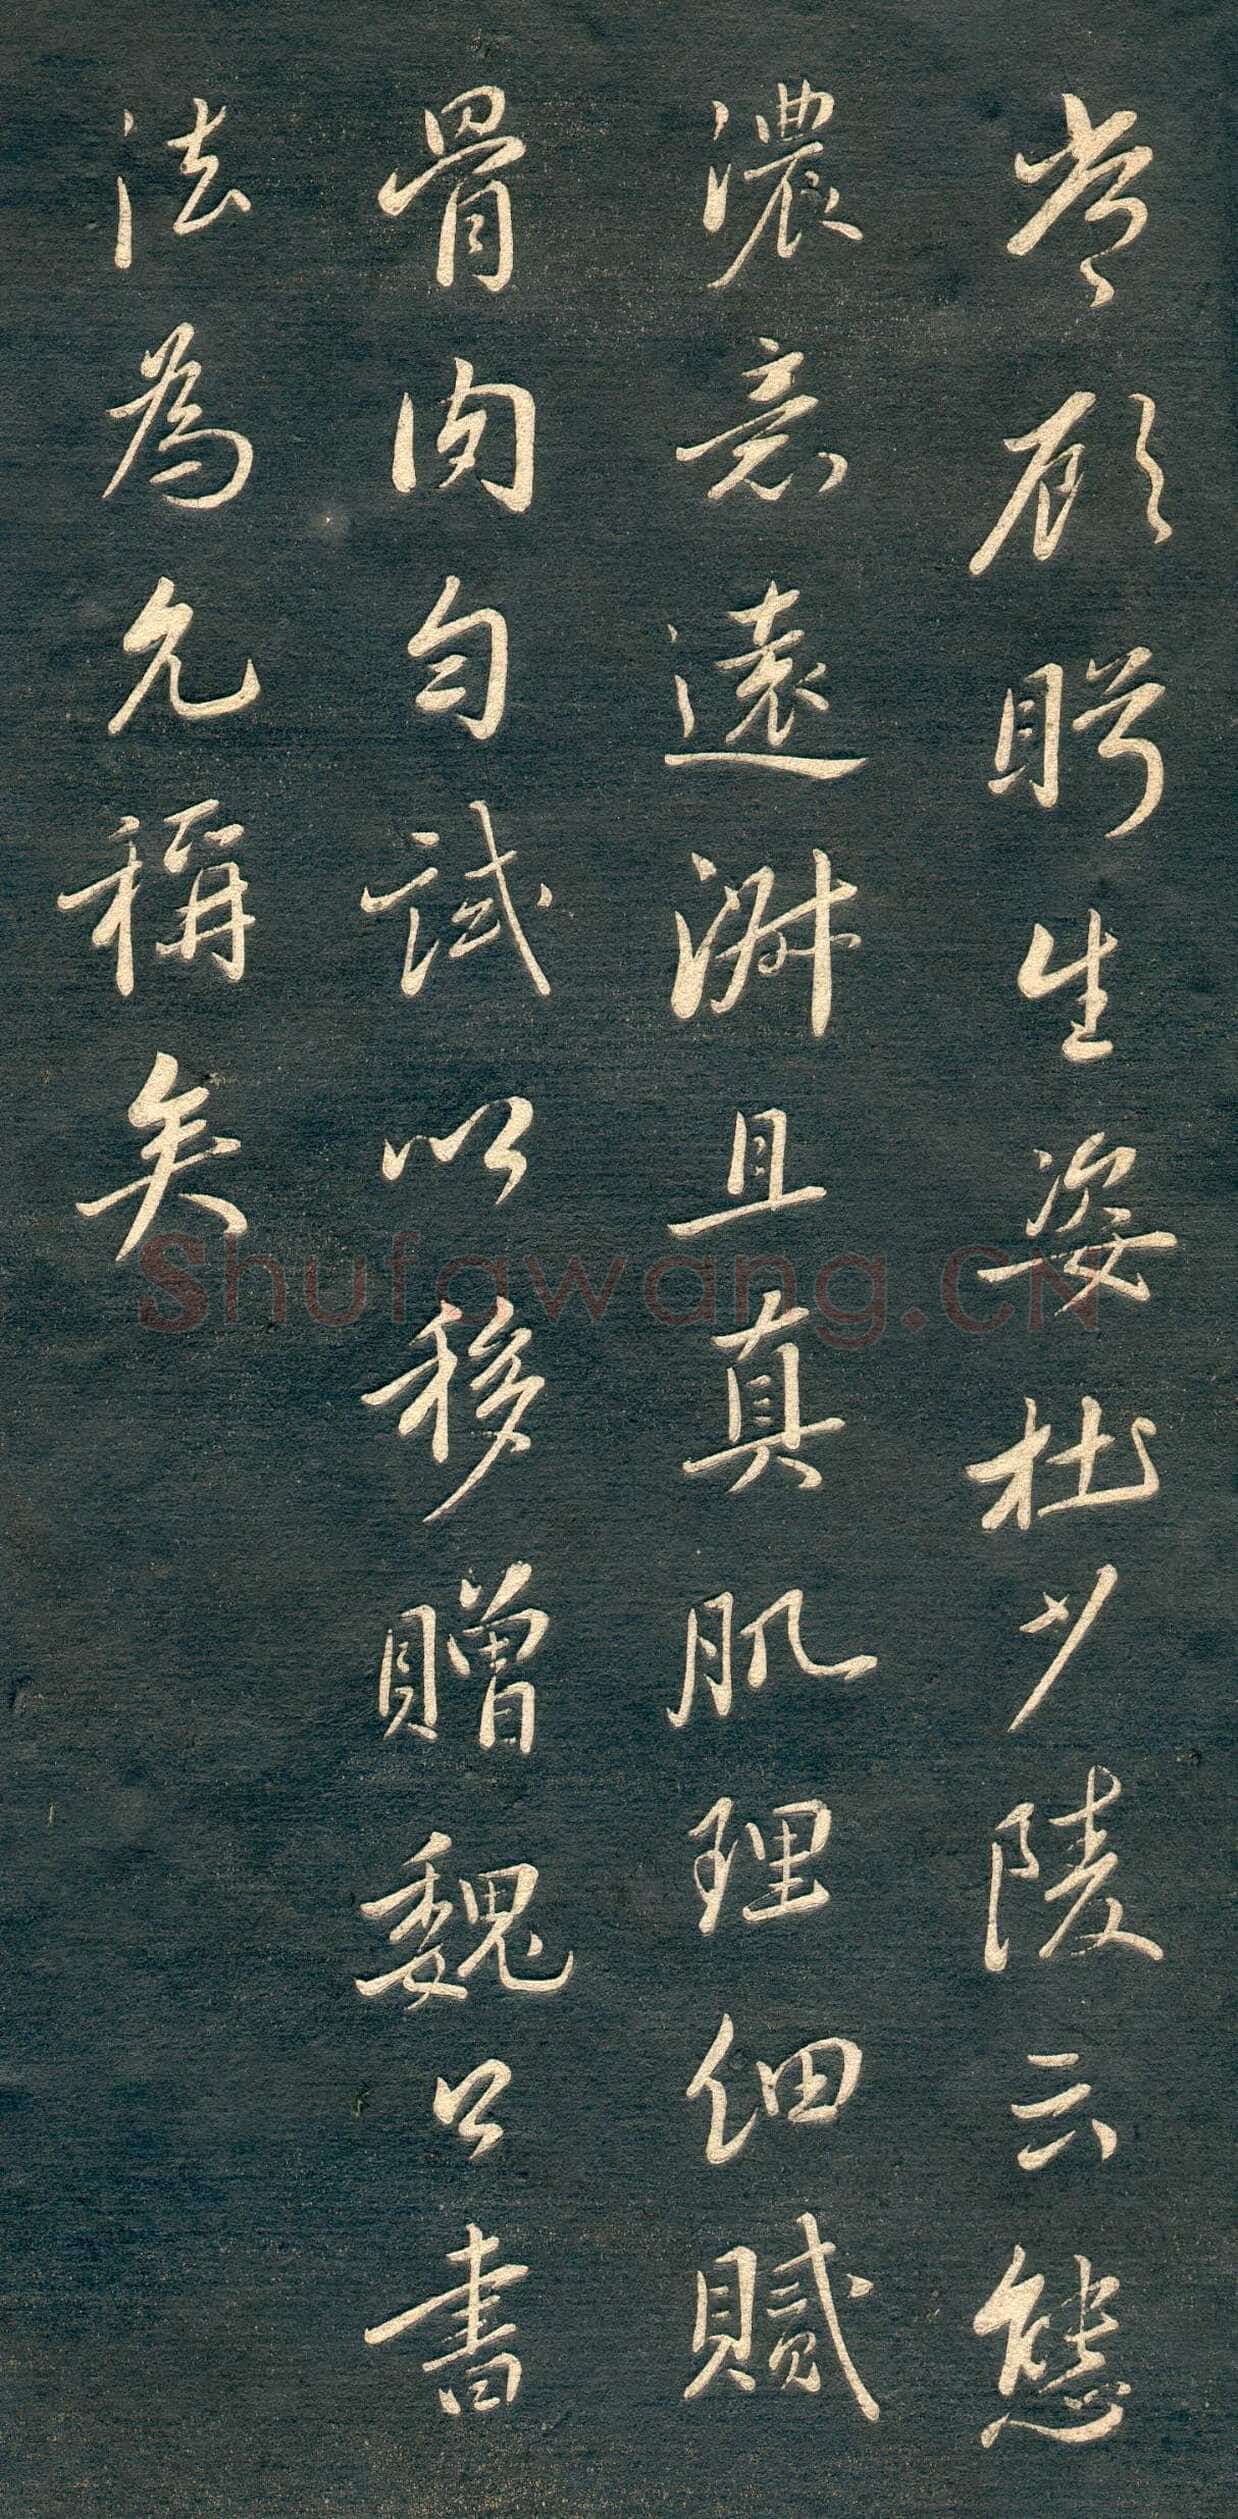 顧眄生姿杜少陵云態
濃意遠淑且真肌理細膩
骨肉勻試以移贈魏公書
法為允稱矣
Shufawang.CN